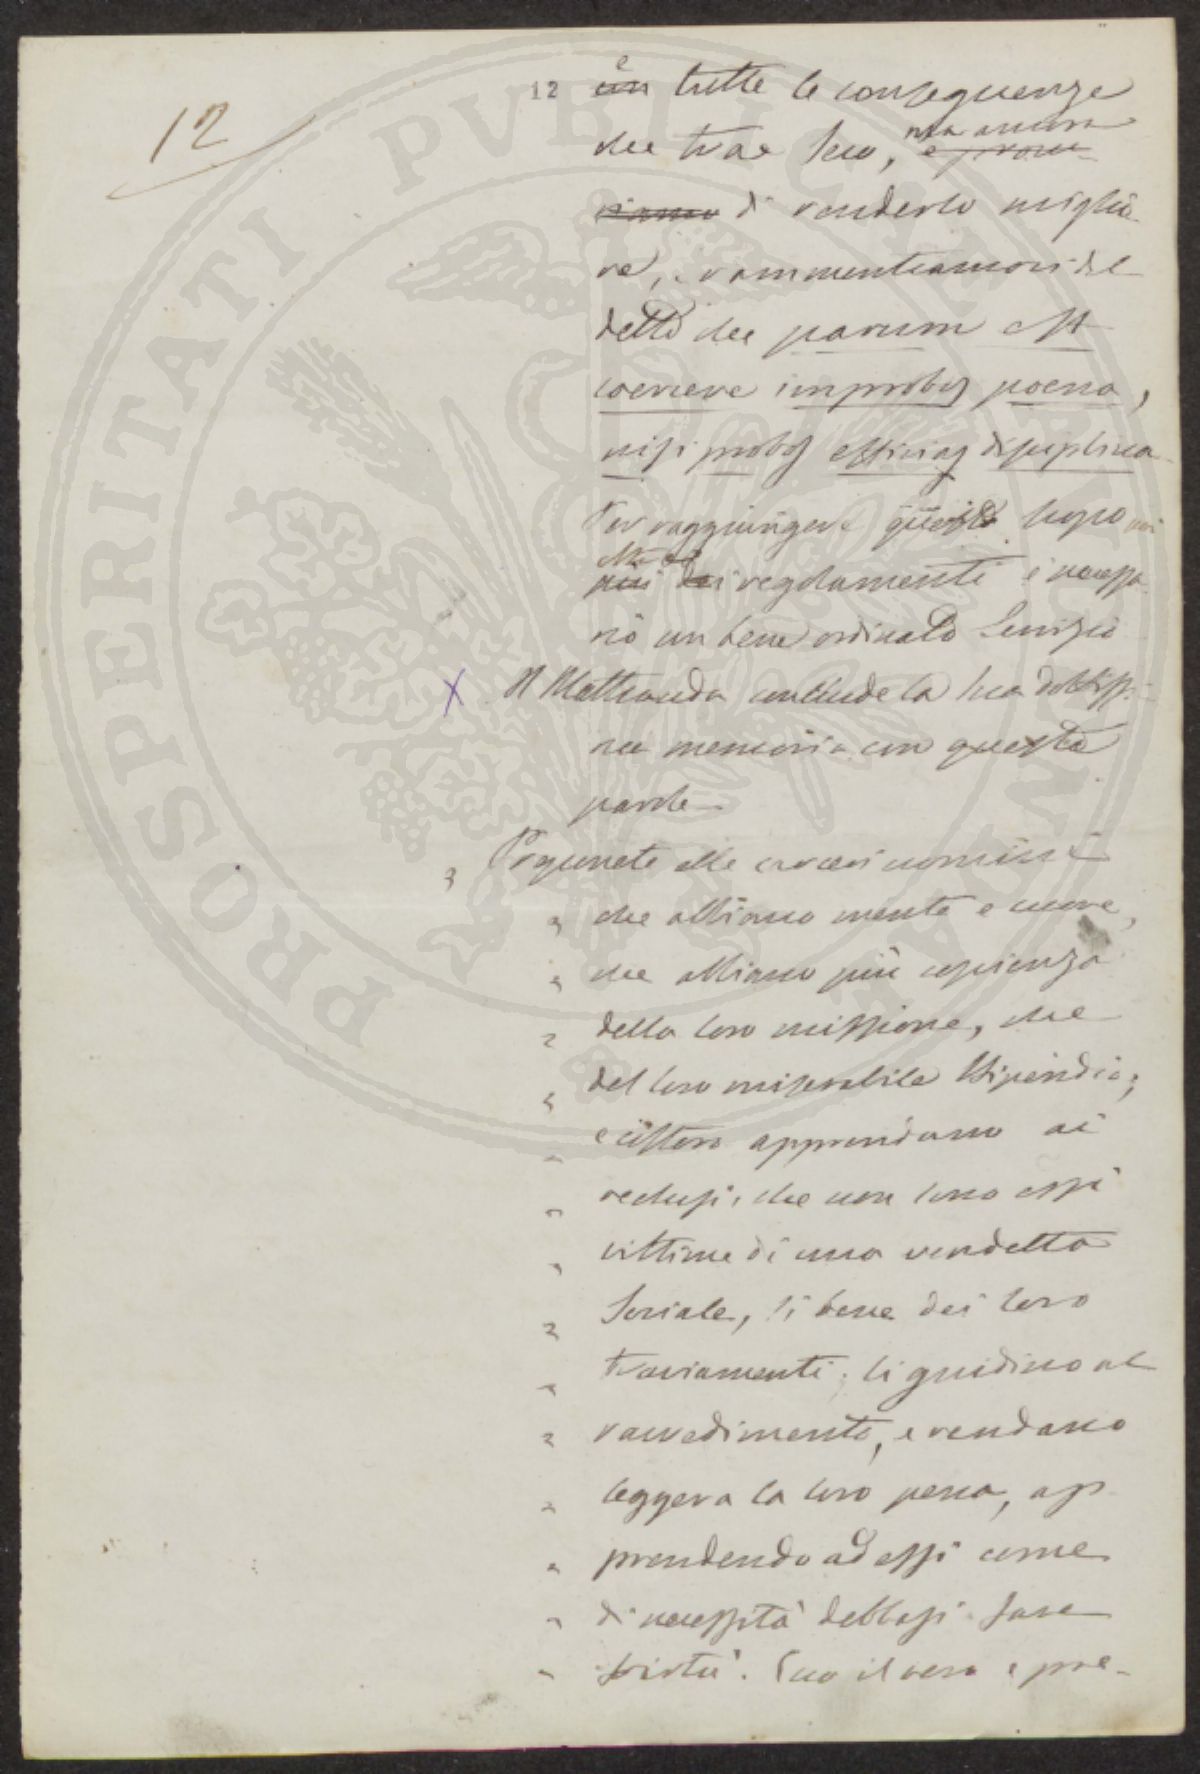 12
12 con e tutte le conseguenze
che trae seco, e procu- ma ancora
riamo di renderlo miglio
re, rammentiamoci del
detto che parum est
coercere improbos poena,
nisi probos efficias disciplina
Per raggiungere questo scopo
più dei regolamenti è necessa
rio un bene ordinato Servizio
X Il Mattirauda conclude la sua dottissi-
ma memoria con queste
parole
" Preponete alle carceri uomini
" che abbiano mente e cuore,
" che abbiano più coscienza
" della loro missione, che
" del loro miserabile stipendio;
" e costoro apprendano ai
" reclusi, che non sono essi
" vittime di una vendetta
" Sociale, si bene dei loro
" traviamenti; li guidino al
" ravvedimento, e rendano
" leggera la loro pena, ap-
" prendendo ad essi come
" di necessità debbasi fare
" virtù. Suo il vero e pre-
PROSPERITATI PVBLICAE